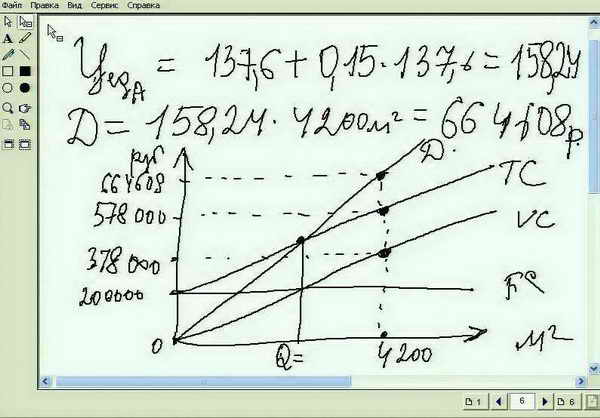 Файл Правка Вид Сервис Справка
Цед А = 137,6 + 0,15 · 137,6 = 158,24
Д = 158,24 · 4200 м² = 664608 р.
руб
Д.
664608
TC
578 000
VC
378 000
200000
FC
0
Q=
4200
М²
1
6
6